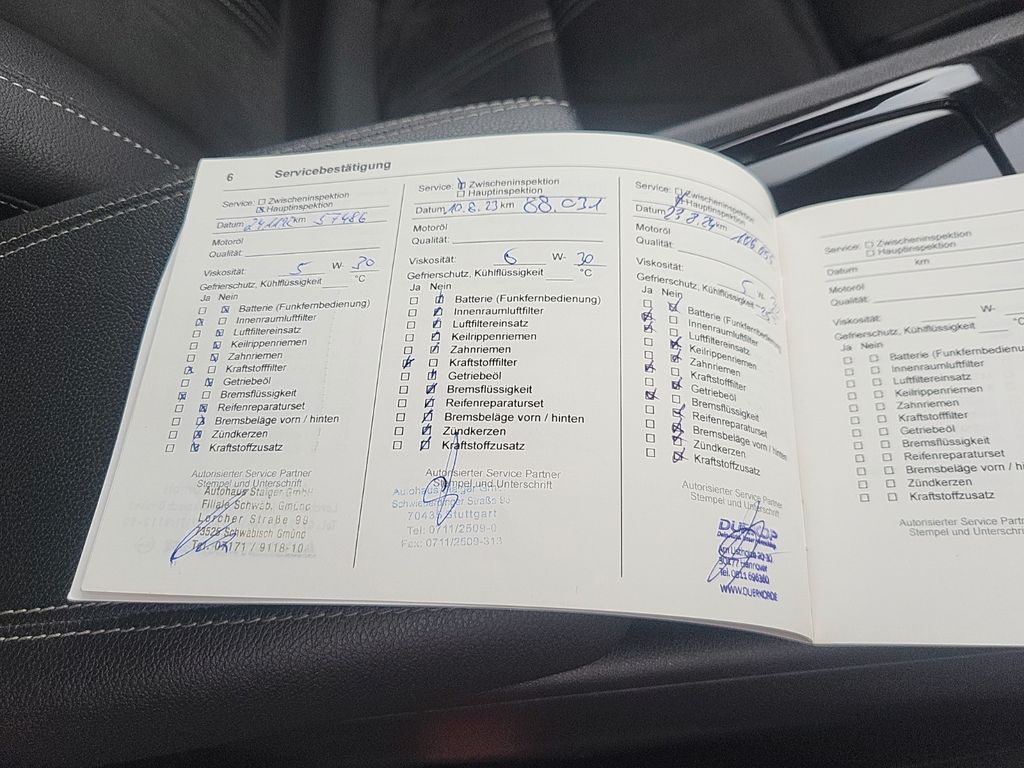 6 Servicebestätigung
Service: Zwischeninspektion
Hauptinspektion
Datum 24.11.22 km 57486
Motoröl
Qualität:
Viskosität: 5 W- 30
Gefrierschutz, Kühlflüssigkeit °C
Ja Nein
Batterie (Funkfernbedienung)
Innenraumluftfilter
Luftfiltereinsatz
Keilrippenriemen
Zahnriemen
Kraftstofffilter
Getriebeöl
Bremsflüssigkeit
Reifenreparaturset
Bremsbeläge vorn / hinten
Zündkerzen
Kraftstoffzusatz
Autorisierter Service Partner
Stempel und Unterschrift
Autohaus Staiger GmbH
Filiale Schwäb. Gmünd
Lorcher Straße 99
73525 Schwäbisch Gmünd
Tel. 07171 / 9118-10
Service: Zwischeninspektion
Hauptinspektion
Datum 10.8.23 km 88.031
Motoröl
Qualität:
Viskosität: W- 30
Gefrierschutz, Kühlflüssigkeit °C
Ja Nein
Batterie (Funkfernbedienung)
Innenraumluftfilter
Luftfiltereinsatz
Keilrippenriemen
Zahnriemen
Kraftstofffilter
Getriebeöl
Bremsflüssigkeit
Reifenreparaturset
Bremsbeläge vorn / hinten
Zündkerzen
Kraftstoffzusatz
Autorisierter Service Partner
Stempel und Unterschrift
Autohaus Staiger
Straße
Stuttgart
Tel: 0711/2509-0
Fax: 0711/2509-313
Service: Zwischeninspektion
Hauptinspektion
Datum 23.8.24 km
Motoröl
Qualität:
Viskosität: 5 W-
Gefrierschutz, Kühlflüssigkeit
Ja Nein
Batterie (Funkfernbedienung)
Innenraumluftfilter
Luftfiltereinsatz
Keilrippenriemen
Zahnriemen
Kraftstofffilter
Getriebeöl
Bremsflüssigkeit
Reifenreparaturset
Bremsbeläge vorn / hinten
Zündkerzen
Kraftstoffzusatz
Autorisierter Service Partner
Stempel und Unterschrift
DÜRKOP
30177 Hannover
WWW.DUERKOP.DE
Service: Zwischeninspektion
Hauptinspektion
Datum km
Motoröl
Qualität:
Viskosität:
Gefrierschutz, Kühlflüssigkeit
Ja Nein
Batterie (Funkfernbedienu
Innenraumluftfilter
Luftfiltereinsatz
Keilrippenriemen
Zahnriemen
Kraftstofffilter
Getriebeöl
Bremsflüssigkeit
Reifenreparaturset
Bremsbeläge vorn / hi
Zündkerzen
Kraftstoffzusatz
Autorisierter Service Partn
Stempel und Unterschrif